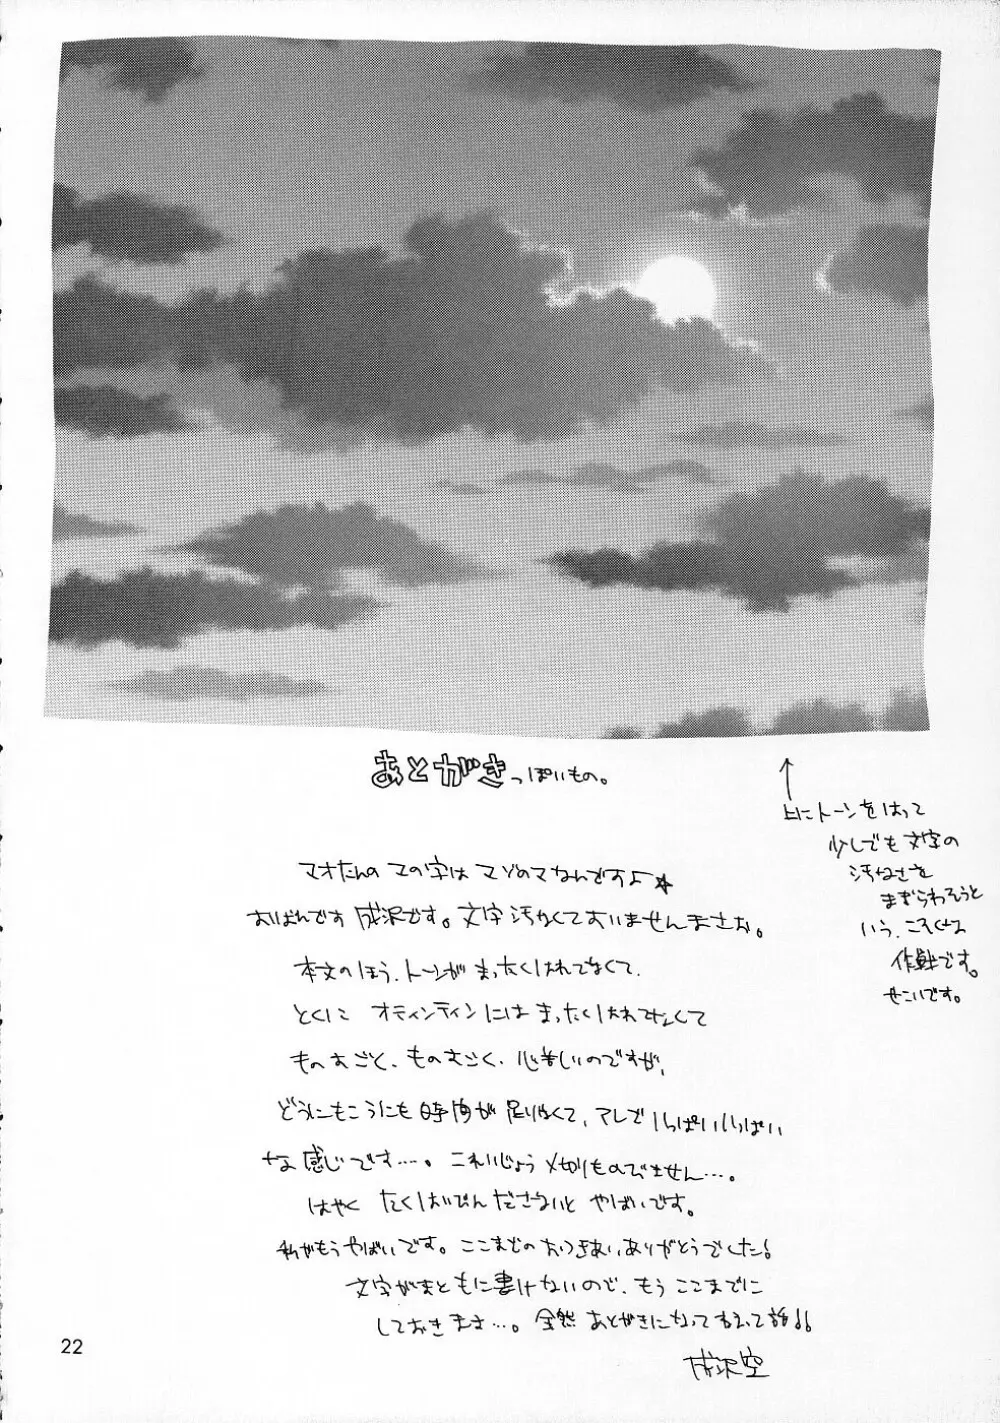 あとがきっぽいもの。
マオたんのマの字はマゾのマなんですよ☆
おばんです成沢です。文字汚なくておいませんまさお。
本文のほう、トーンがまったくはれてなくて、
とくに オティンティンにはまったくはれてなくて
ものすごく、ものすごく、心苦しいのですが、
どうにもこうにも時間が足りなくて、アレでいっぱいいっぱい
な感じです…。これいじょう〆切りものびません…。
はやく たくはいびんださないと やばいです。
私がもうやばいです。ここまでのおつきあいありがとうでした!
文字がまともに書けないので、もう ここまでに
しておきます…。全然 あとがきになってねえって話!!
成沢空
↑
上にトーンをはって
少しでも文字の
汚なさを
まぎらわそうと
いう、こそくな
作戦です。
せこいです。
22